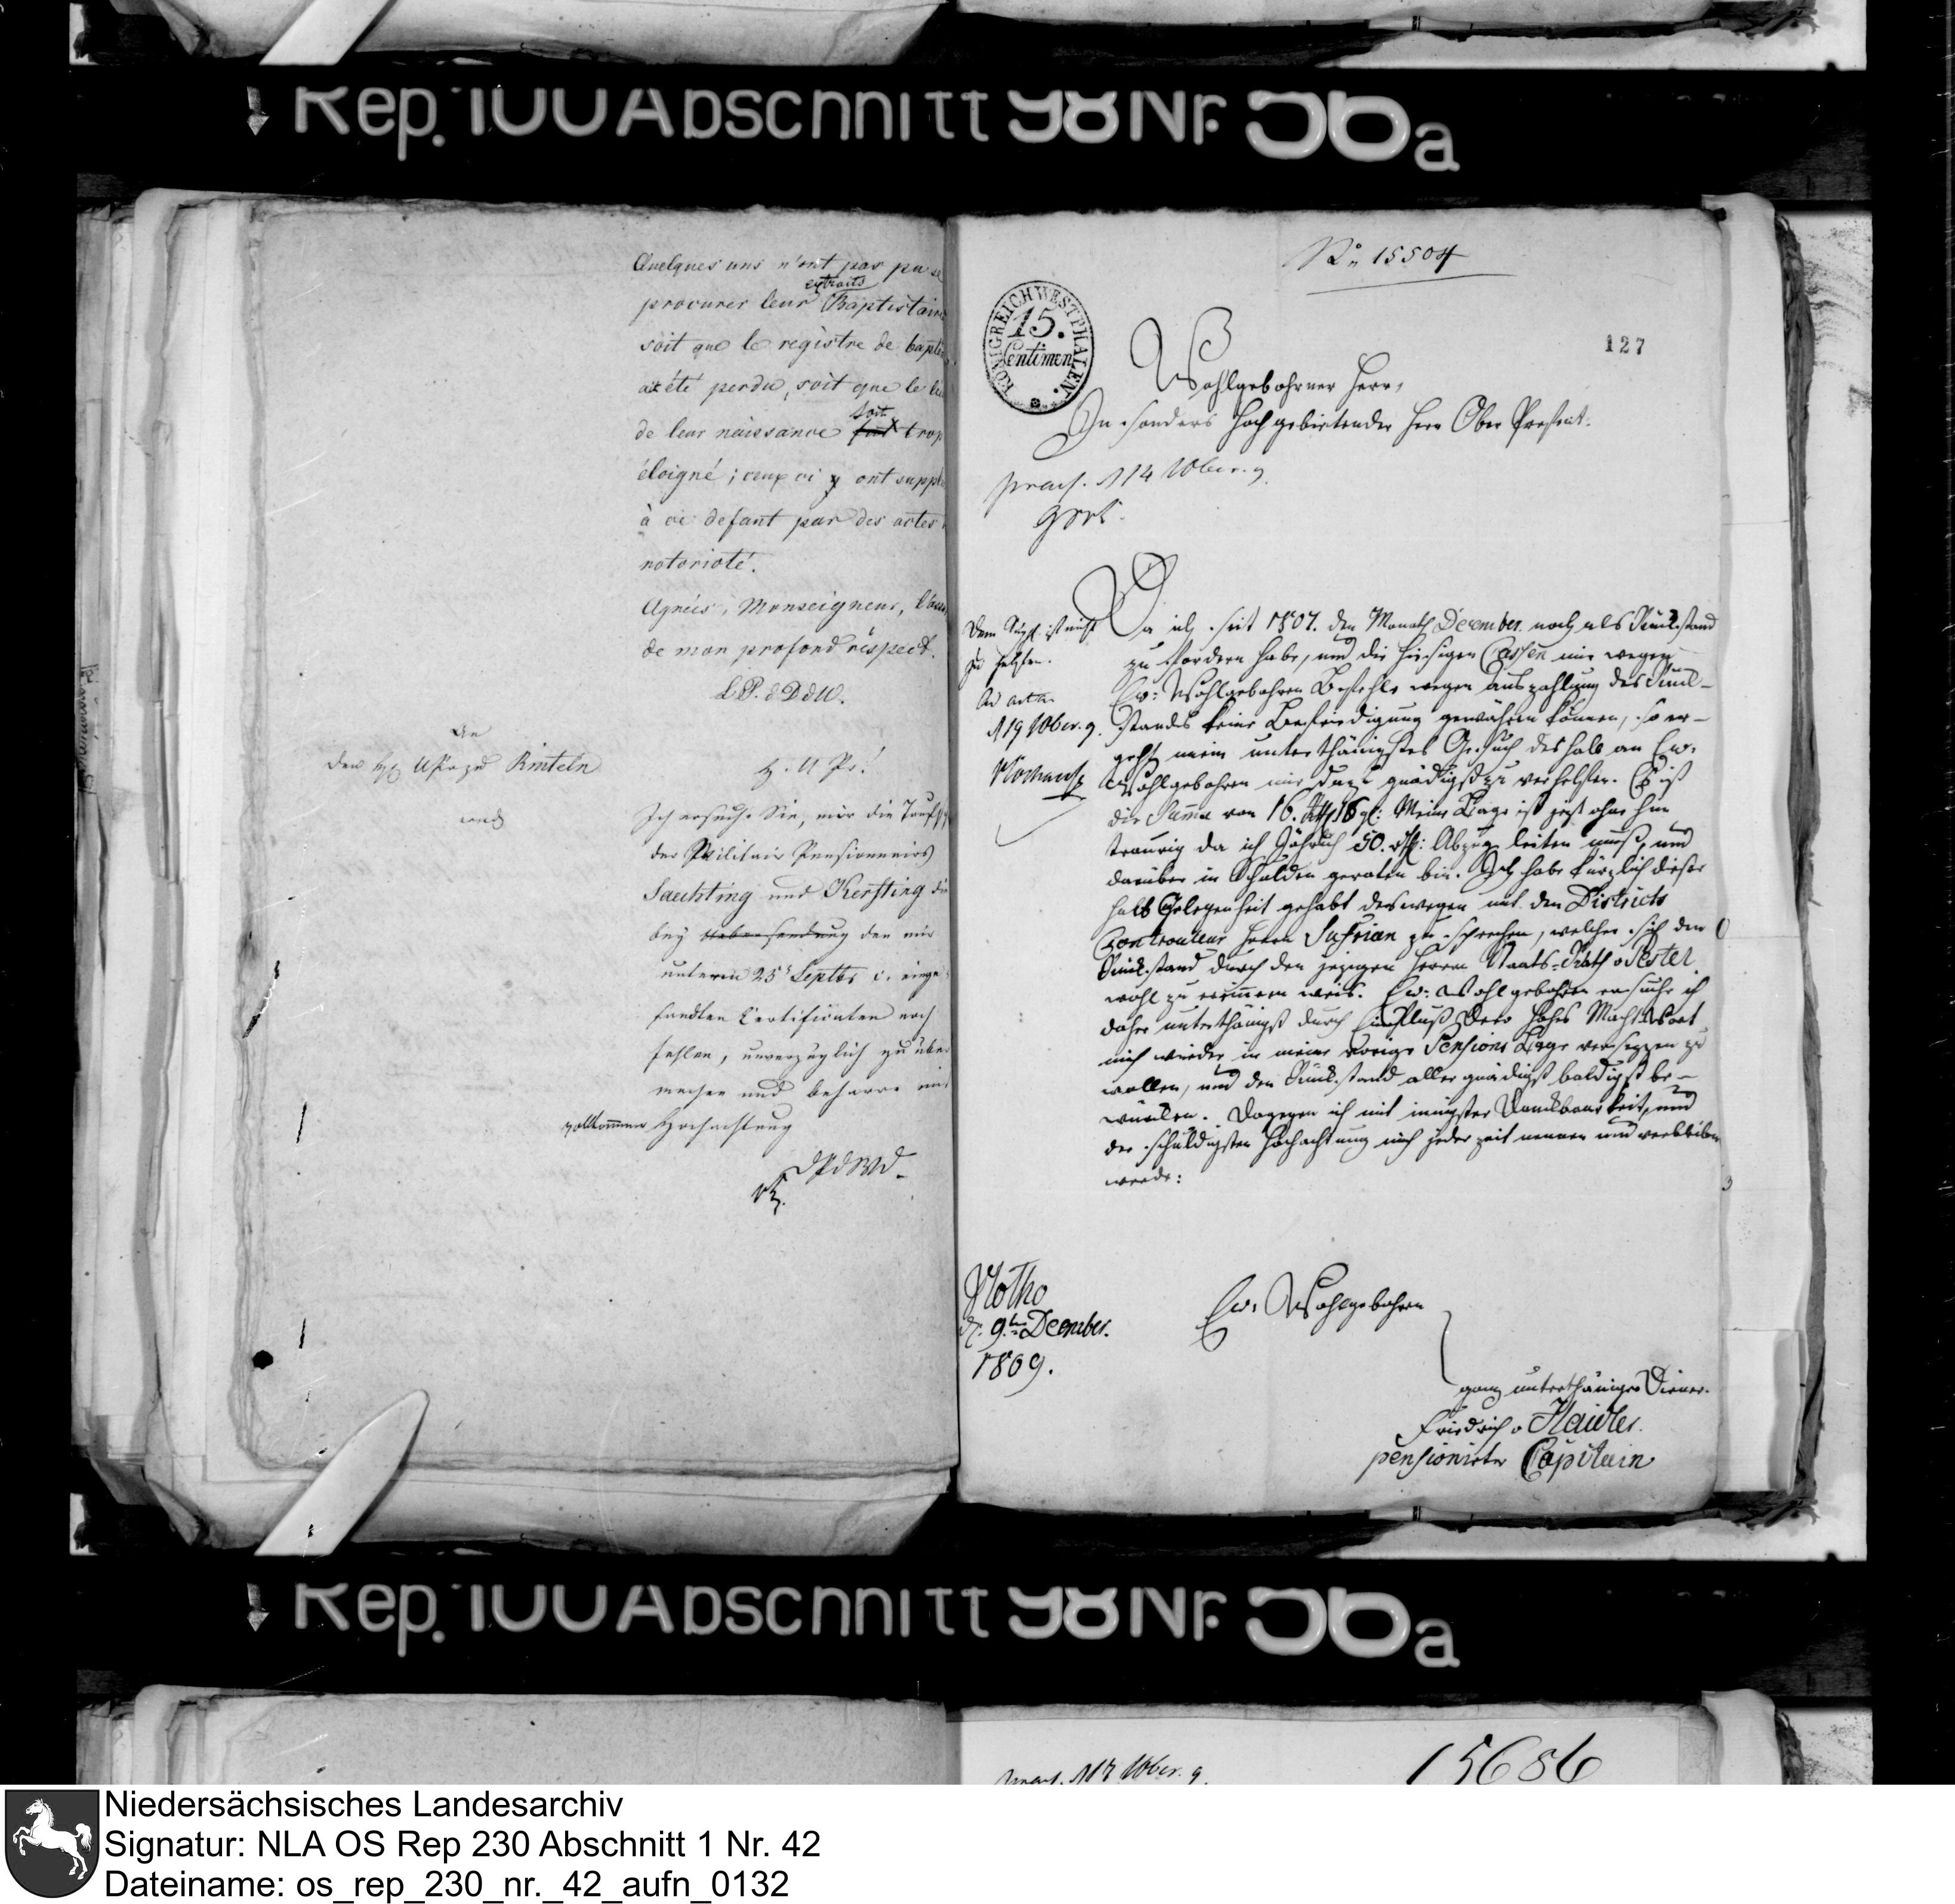 Rep. 100 Abschnitt 98 Nr. 56a
Quelques uns n'ont pas pu se
extraits
procurer leur Baptistaire
soit que le registre de bapte
ait été perdu, soit que le lieu
soit
de leur naissance fut trop
éloigné; ceux ci y ont supplé
à ce defaut par des actes
notorieté.
Agréés, Monseigneur, l'assu
de mon profond respect.
L P. d D d W.
An
den H. UPr. zu Rinteln
H. U Pr!
Ich ersuche Sie, mir die Taufsch
der Militair Pensionnairs
Saechting und Kersting die
bey Uebersendung den mir
unterm 25t Septbr c. einge
sandten Certificaten noch
fehlen, unverzüglich zu über
machen und beharre mit
vollkommner Hochachtung
DPdWD.
No 15504
KÖNIGREICH WESTPHALEN.
15.
Centimen
127
Wohlgebohrner Herr,
In sonders Hoch gebietender Herr Ober Prefect.
praes. d 14 Xber. 9.
Dem Supl. ist nicht
zu helfen.
Ad acta
d 19 Xber. 9.
Da ich seit 1807. den Monath December noch als Rückstand
zu fordern habe, und die hiesigen Cassen mir wegen
Ew: Wohlgebohren Befehle wegen auszahlung des Rück-
standes keine Befriedigung gewähren können, so er-
geht mein unterthänigstes Gesuch deshalb an Ew.
Wohlgebohren mir dazu gnädigst zu verhelfen. Es ist
die Summe von 16. Rthl 16 gl: Meine Lage ist jetzt ohne hin
traurig da ich Jährlich 50. rthl: Abzug leiten muß, und
darüber in Schulden geraten bin. Ich habe kürzlich dieser
halb Gelegenheit gehabt deswegen mit den Districts
Controuleur Herrn Sufrian zu sprechen, welcher sich den
Rückstand durch den jezigen Herrn Staats-Rath v Pestel
wohl zu erinnern weis. Ew: Wohlgebohren ersuche ich
daher unterthänigst durch Einfluß Dero hohes Machtwort
mich wieder in meine vorige Pensions Lage versezzen zu
wollen, und den Rückstand aller gnädigst baldigst be-
würcken. Dagegen ich mit innigster Danckbaarkeit, und
der schuldigsten Hochachtung mich jeder zeit nennen und verbleiben
werde:
Vlotho
d. 9ten December.
1809.
Ew. Wohlgebohren
ganz unterthäniger Diener.
Friedrich v
pensionirter Capitain
Rep. 100 Abschnitt 98 Nr. 56a
praes. d 17 Xber. 9.
15686
Niedersächsisches Landesarchiv
Signatur: NLA OS Rep 230 Abschnitt 1 Nr. 42
Dateiname: os_rep_230_nr._42_aufn_0132